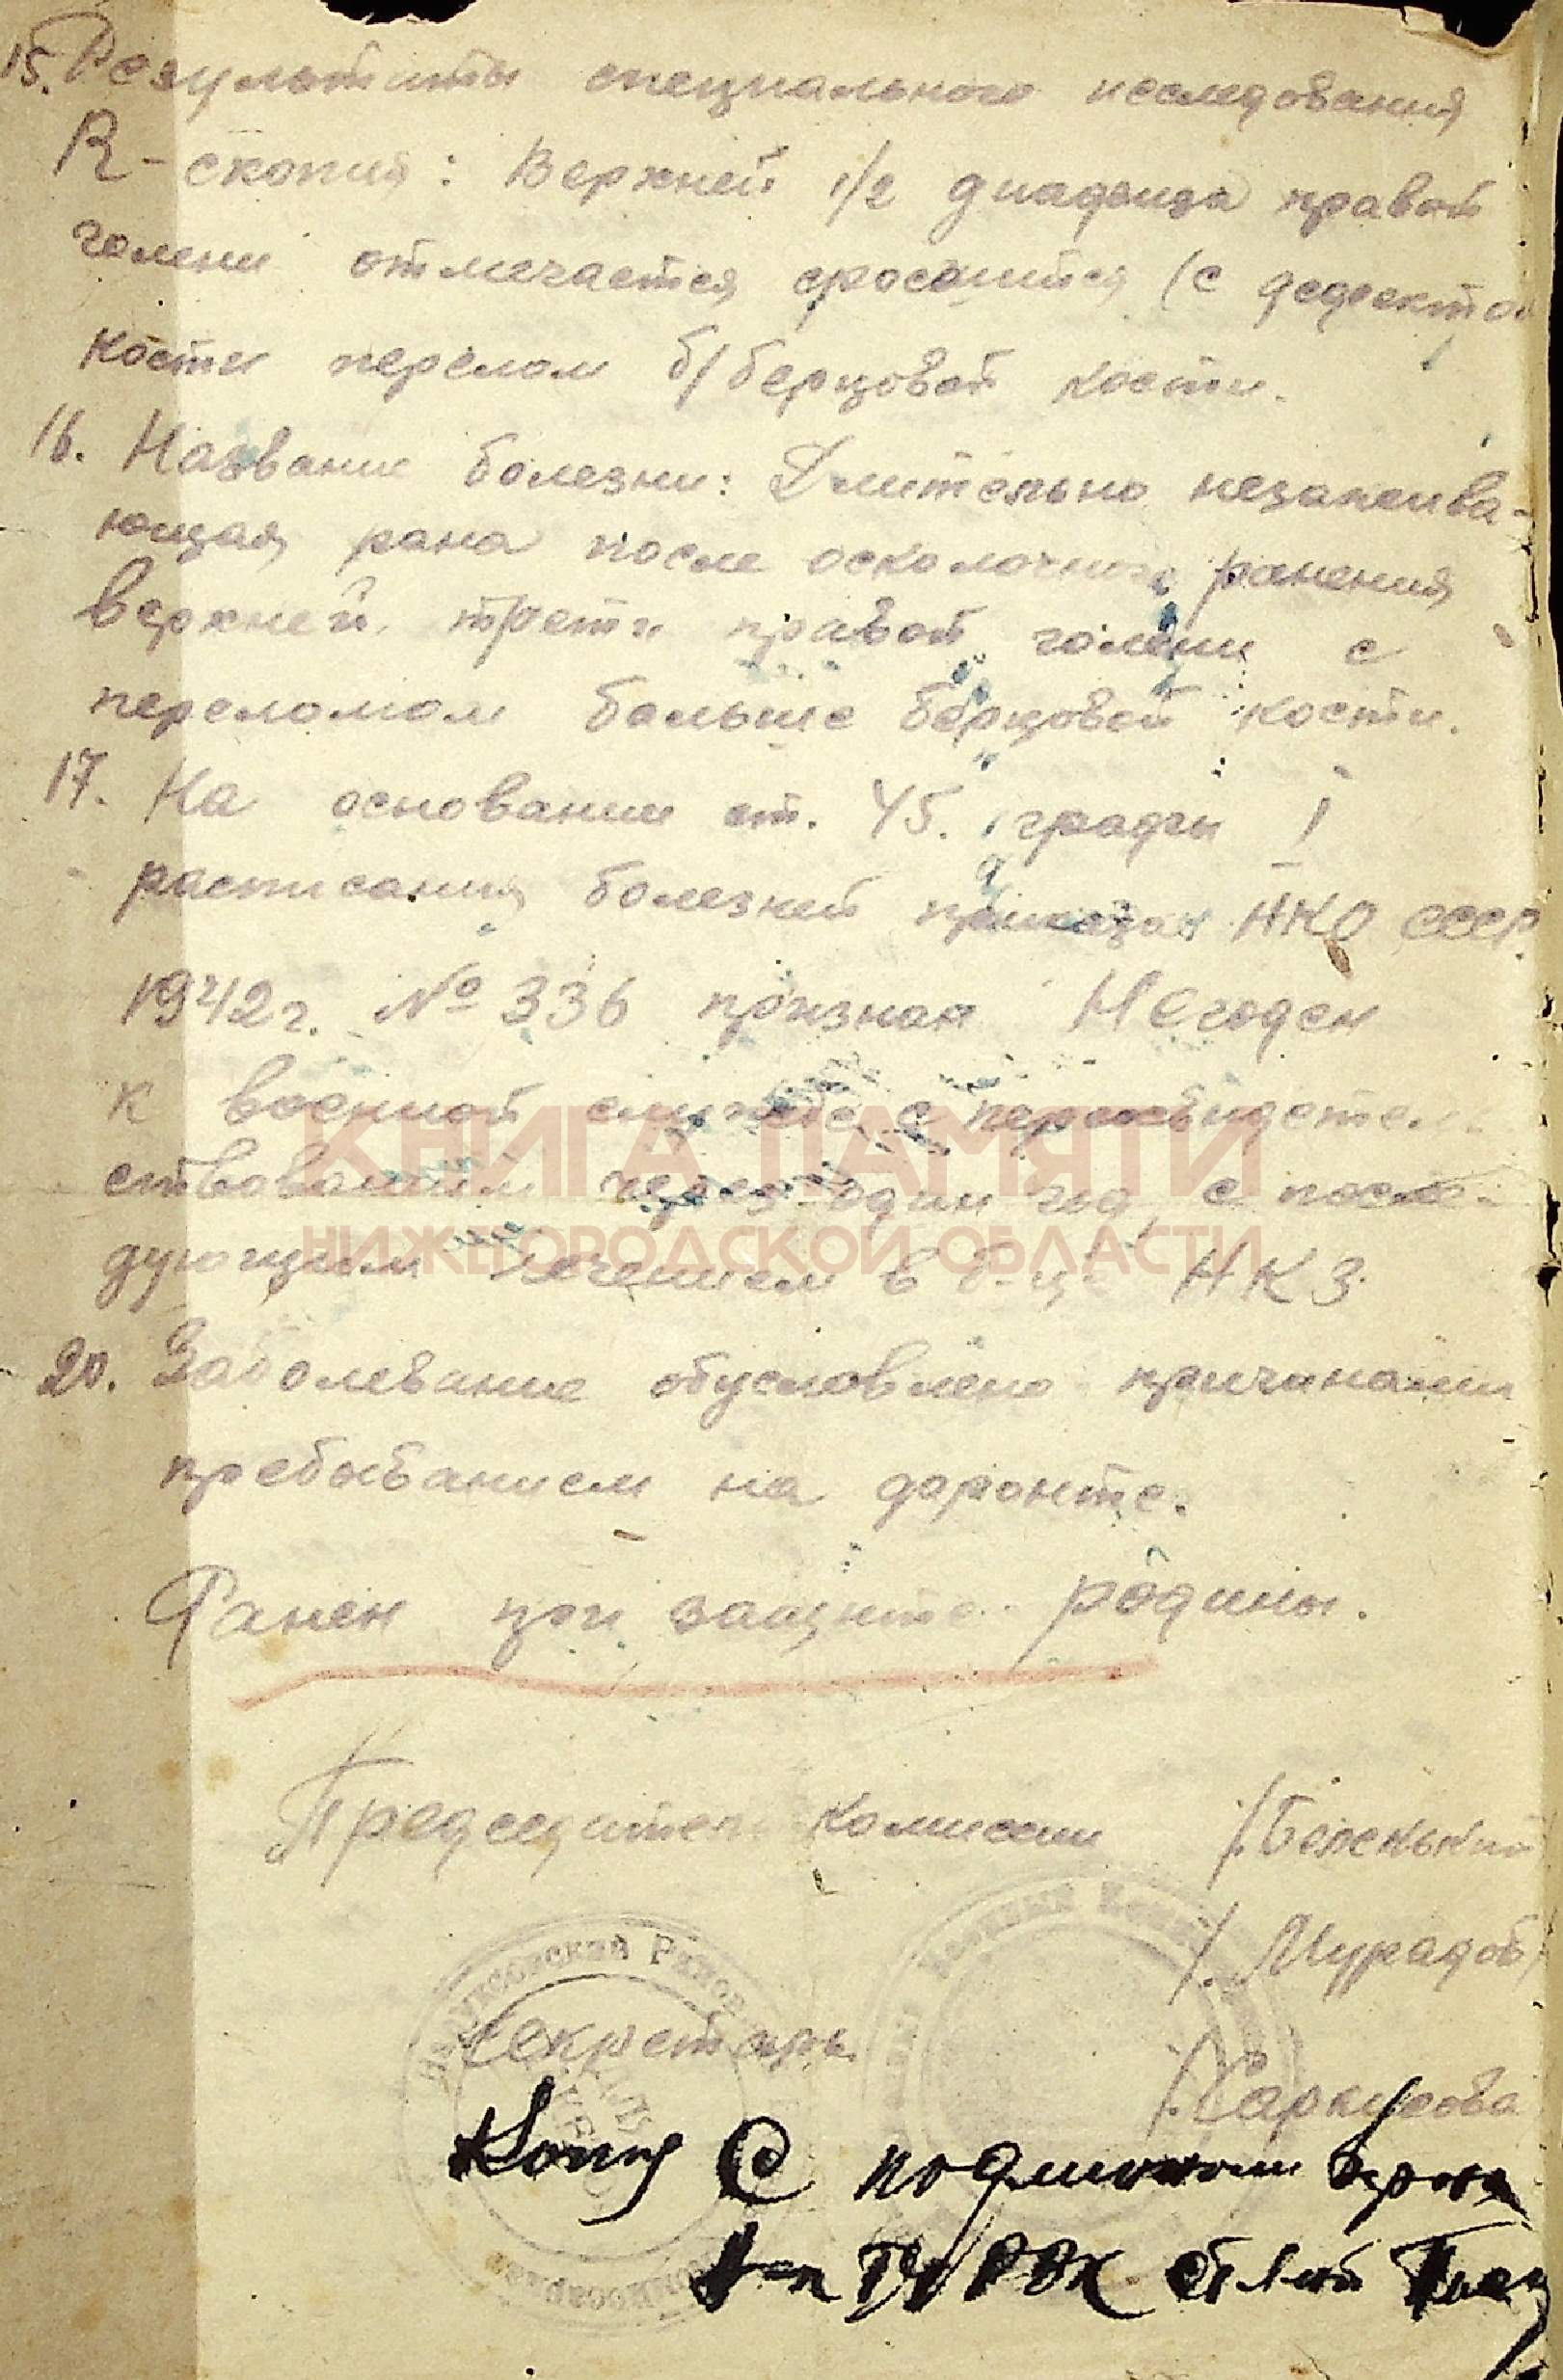 15. Результаты специального исследования
R-скопия: Верхней 1/2 диафиза правой
голени отмечается сросшийся (с дефектом
кости перелом б/берцовой кости.
16. Название болезни: Длительно незажива-
ющая рана после осколочного ранения
верхней трети правой голени с
переломом больше берцовой кости.
17. На основании ст. 45. графы I
расписания болезней приказа НКО СССР
1942 г. № 336 признан Негоден
к военной службе с переосвидетель
ствованием через один год, с после-
дующим лечением в б-це НКЗ.
КНИГА ПАМЯТИ
НИЖЕГОРОДСКОЙ ОБЛАСТИ
20. Заболевание обусловлено причинами
пребыванием на фронте.
Ранен при защите родины.
Председатель комиссии /Беленький
/Мурадов/
Секретарь
/Саркисова
Копия с подлинным верна
РВК